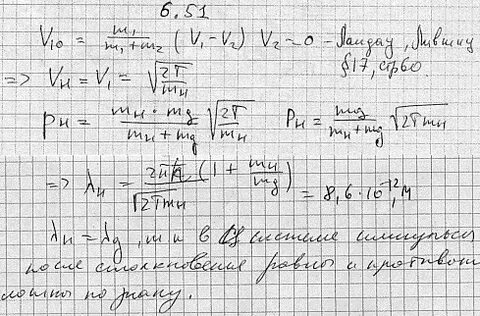 6.51
V₁₀ = m₁/(m₁+m₂) (V₁-V₂) V₂=0 - Ландау, Лившиц
§17, стр60.
=> Vн = V₁ = √(2T/mн)
Pн = (mн·mд)/(mн+mд) √(2T/mн) Pн = mд/(mн+mд) √(2Tmн)
=> λн = 2πħ/√(2Tmн) (1 + mн/mд) = 8,6·10⁻¹² м
λн = λд, т к в Ц системе импульсы
после столкновения равны и противопо
ложны по знаку.